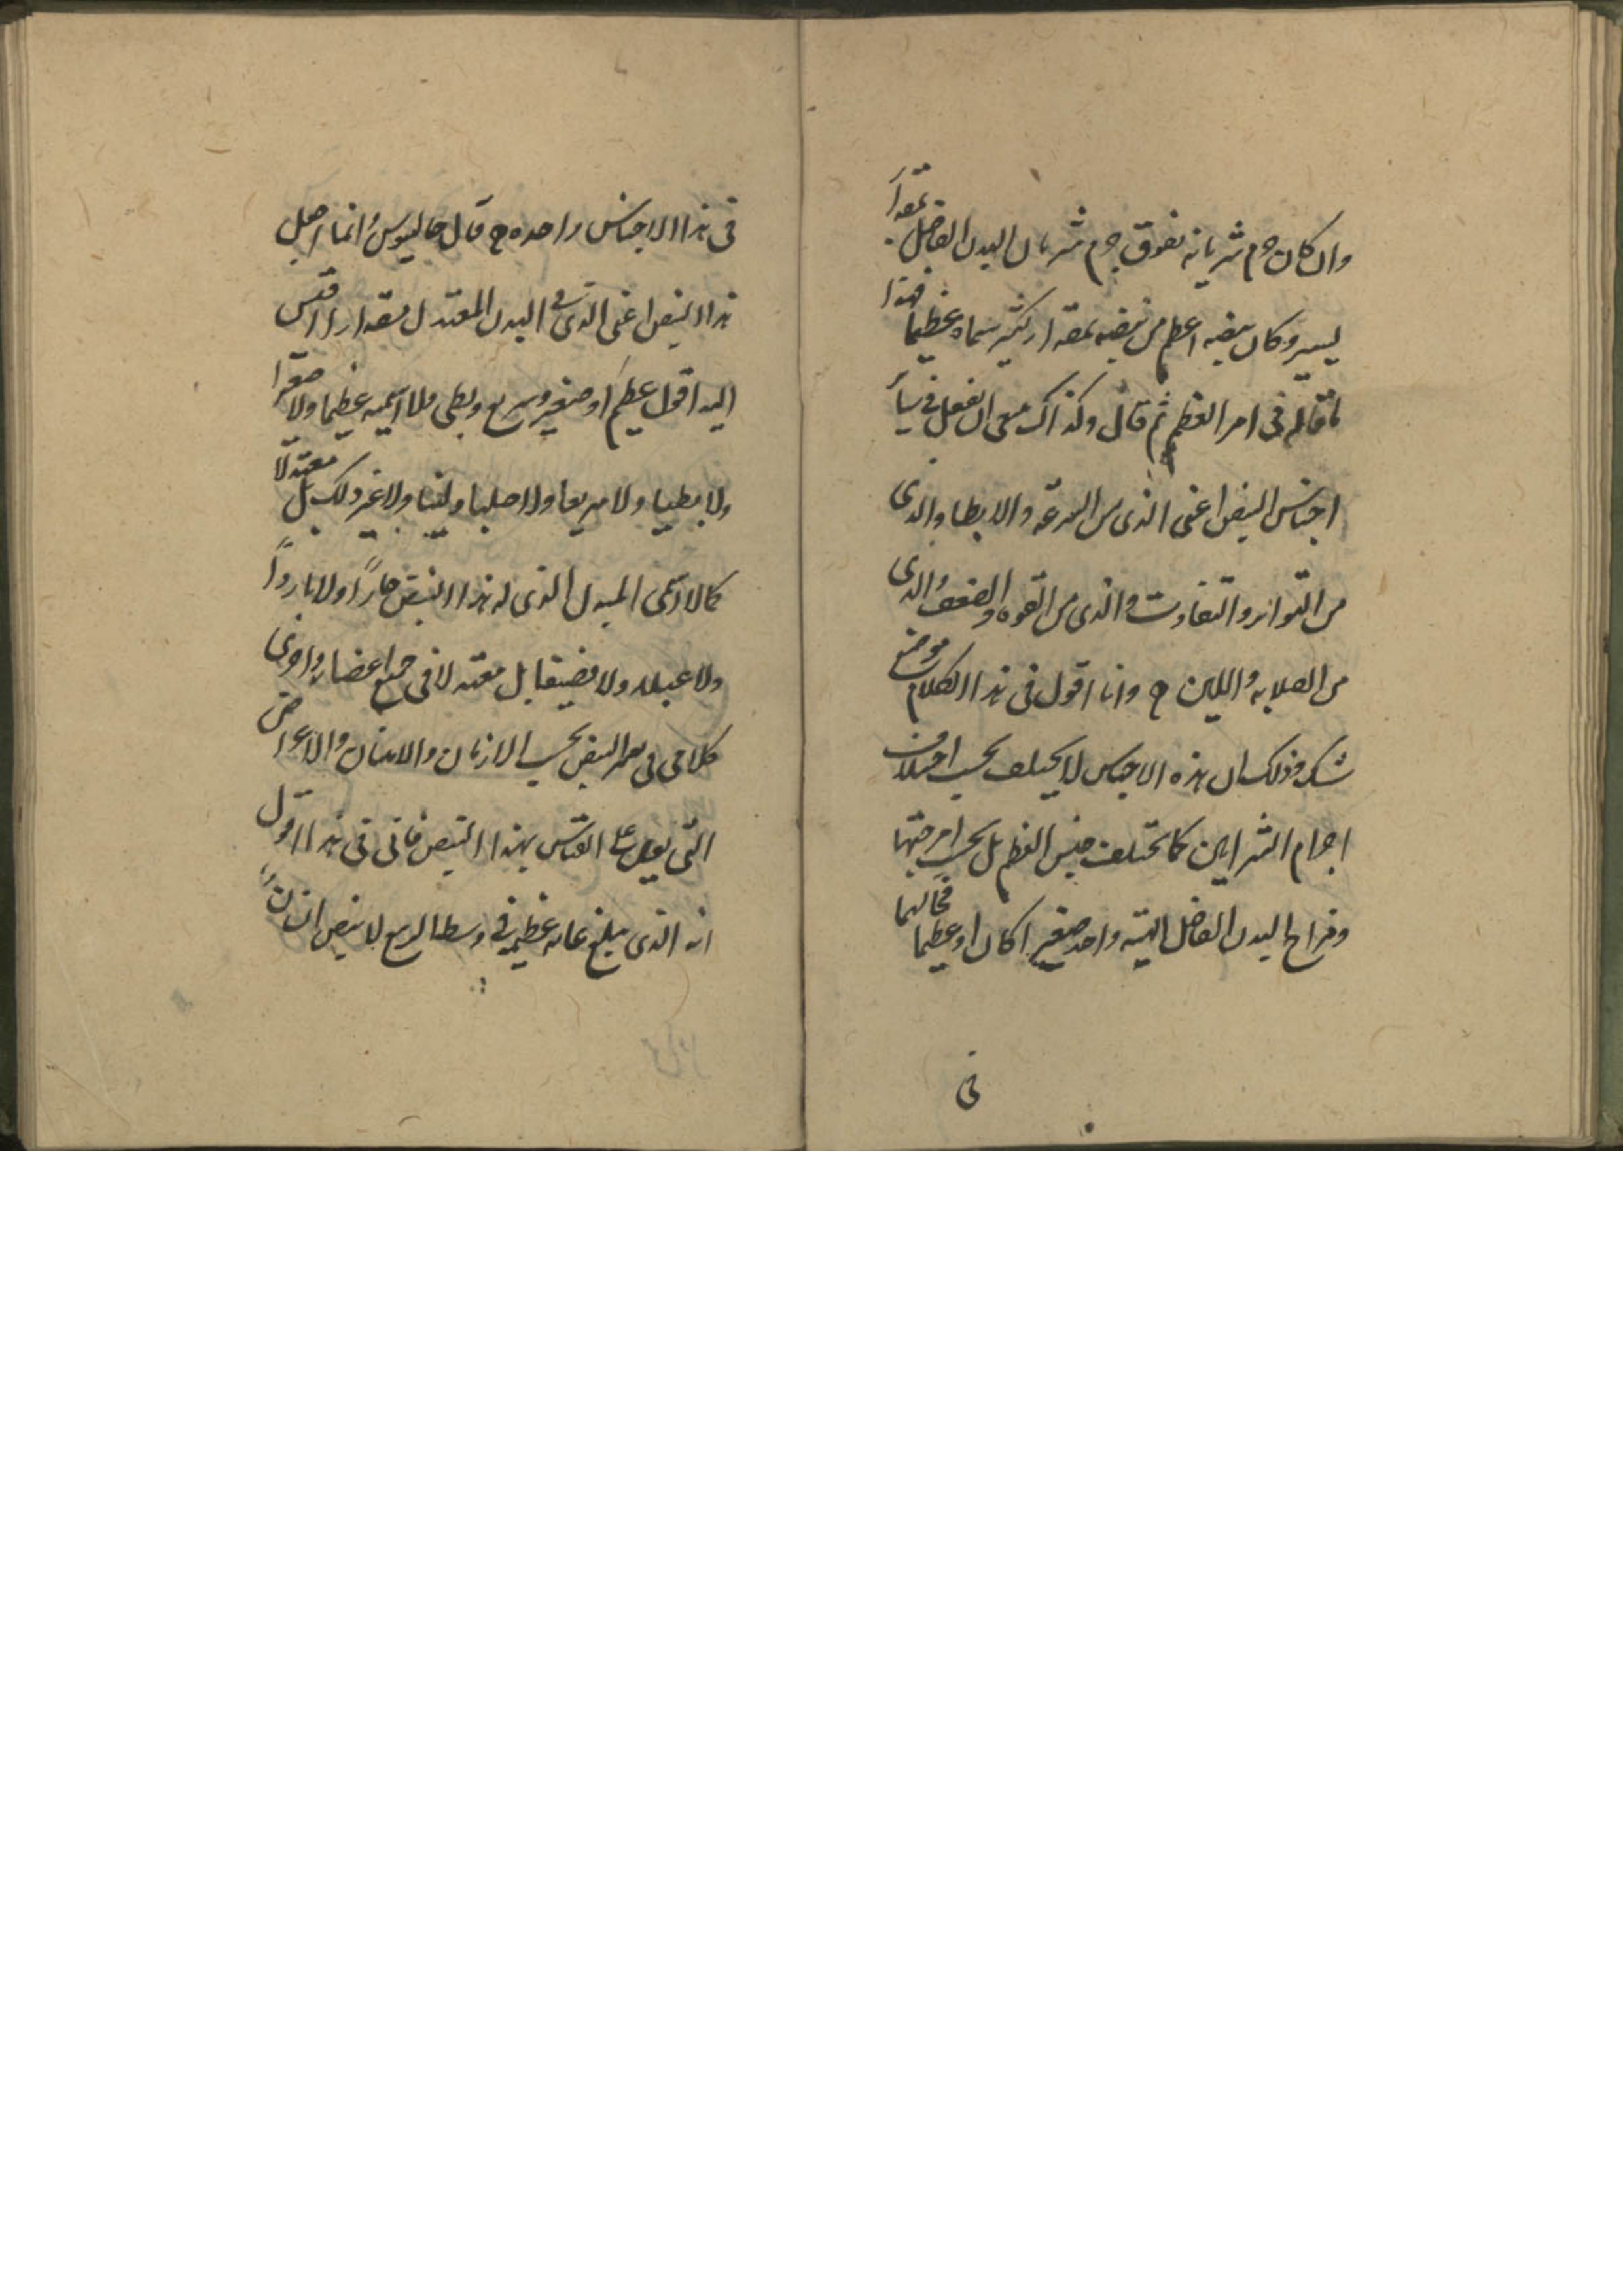 وان كان جرم شريانه يفوق جرم شريان البدن الفاضل بمقدار
يسير وكان نبضه اعظم من نبضه بمقدار كثير سماه عظيما فهذا
ما قاله في امر العظم ثم قال وكذلك ينبغي ان نفعل في سائر
اجناس النبض اعني الذي من السرعة والابطا والذي
من التواتر والتفاوت والذي من القوه والضعف والذي
من الصلابه واللين وانا اقول في هذا الكلام موضع
شك وذلك ان هذه الاجناس لا يختلف بحسب اختلاف
اجرام الشرايين كما تختلف جنس العظم بل بحسب امزجتها
ومزاج البدن الفاضل الهيئه واحد صغيرا كان او عظيما فحالهما
في
في هذا الاجناس واحده قال جالينوس وانما اجعل
هذا النبض اعني الذي في البدن المعتدل مقدارا اقيس
اليه اقول عظيم او صغير وسريع وبطي ولا اسميه عظيما ولا صغيرا
ولا بطيا ولا سريعا ولا صلبا ولينا ولا غير ذلك بل معتدلا
كما لا اسمي البدن الذي له هذا النبض حارا ولا باردا
ولا عبلا ولا قضيفا بل معتدلا في جميع اعضايه واجري
كلامي في تغير النبض بحسب الازمان والاسنان والاعراض
التي على القياس بهذا النبض فاني في هذا اقول
انه الذي يبلغ غايه عظمه في وسط الربيع لا نبض انسان